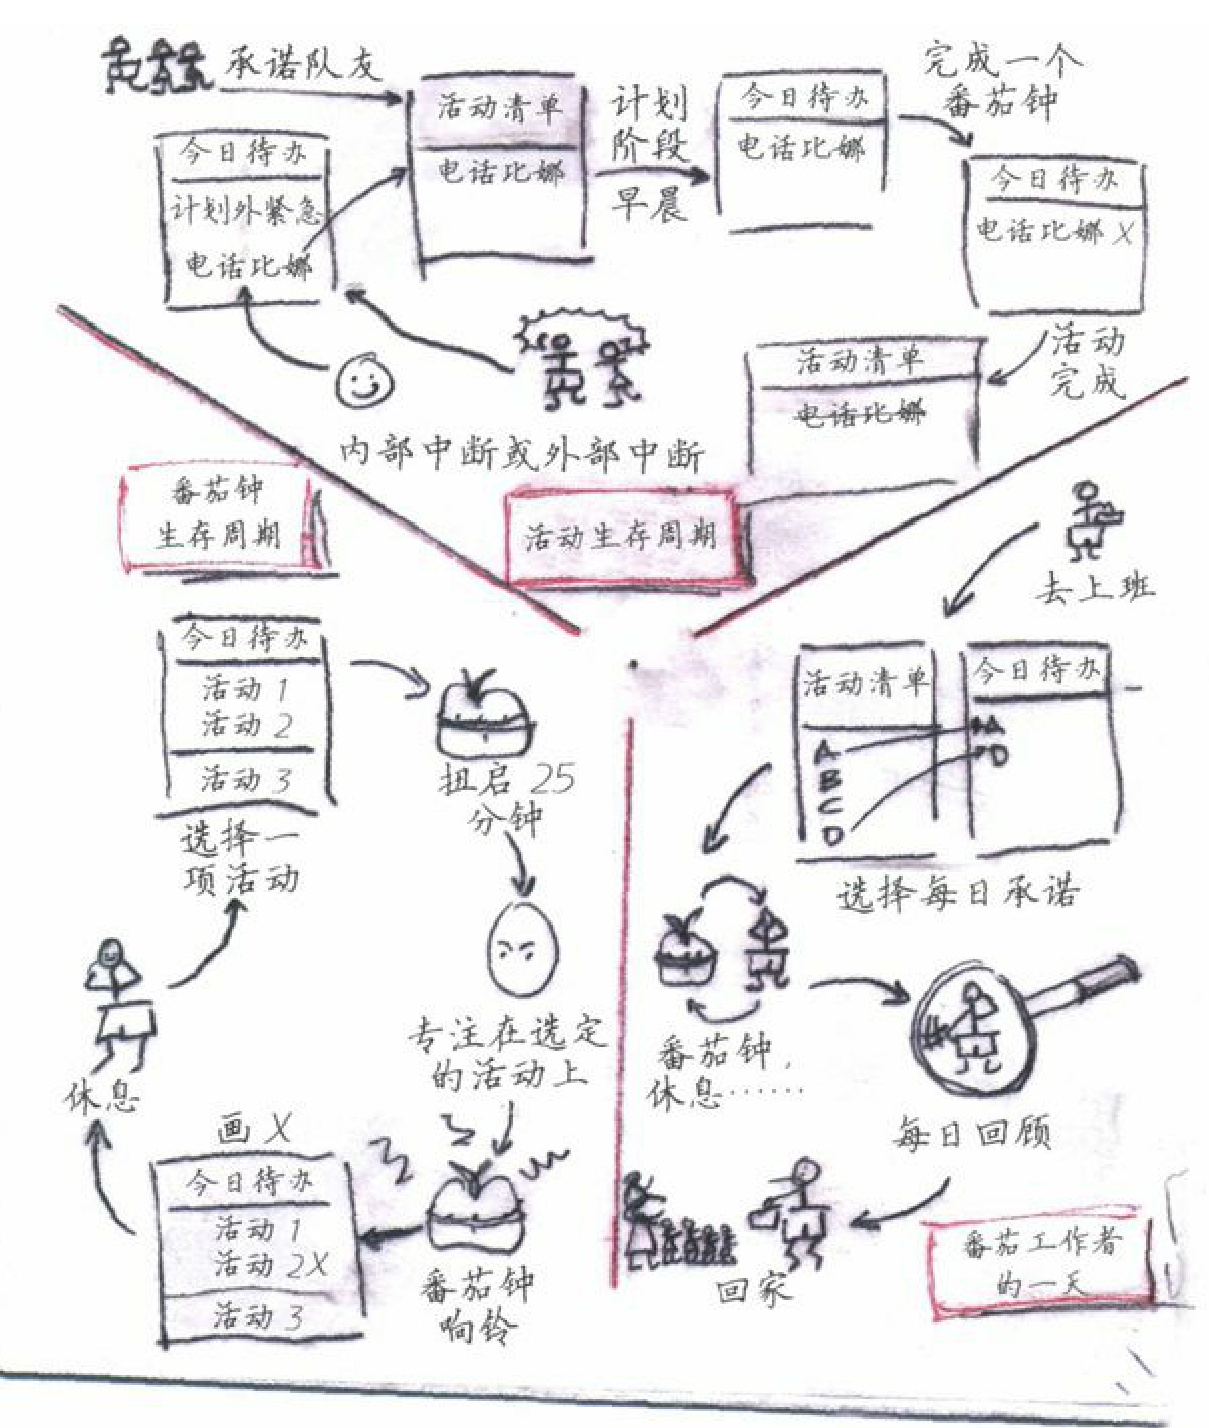 承诺队友
今日待办
计划外紧急
电话比娜
活动清单
电话比娜
计划
阶段
早晨
今日待办
电话比娜
完成一个
番茄钟
今日待办
电话比娜 X
活动
完成
活动清单
电话比娜
内部中断或外部中断
活动生存周期
番茄钟
生存周期
今日待办
活动 1
活动 2
活动 3
选择一
项活动
扭启 25
分钟
专注在选定
的活动上
番茄钟
响铃
画 X
今日待办
活动 1
活动 2X
活动 3
休息
去上班
活动清单
A
B
C
D
今日待办
A
D
选择每日承诺
番茄钟,
休息……
每日回顾
回家
番茄工作者
的一天